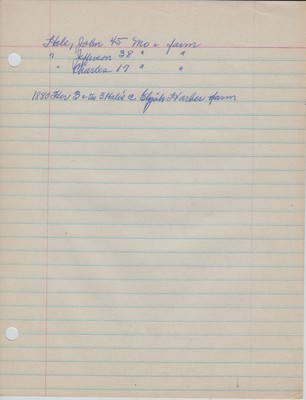 Hale, John 45 Mo - farm
" Jefferson 38 " "
" Charles 17 " "
1880 Tier 3 the 3 Hale's @ Elijah Harber farm